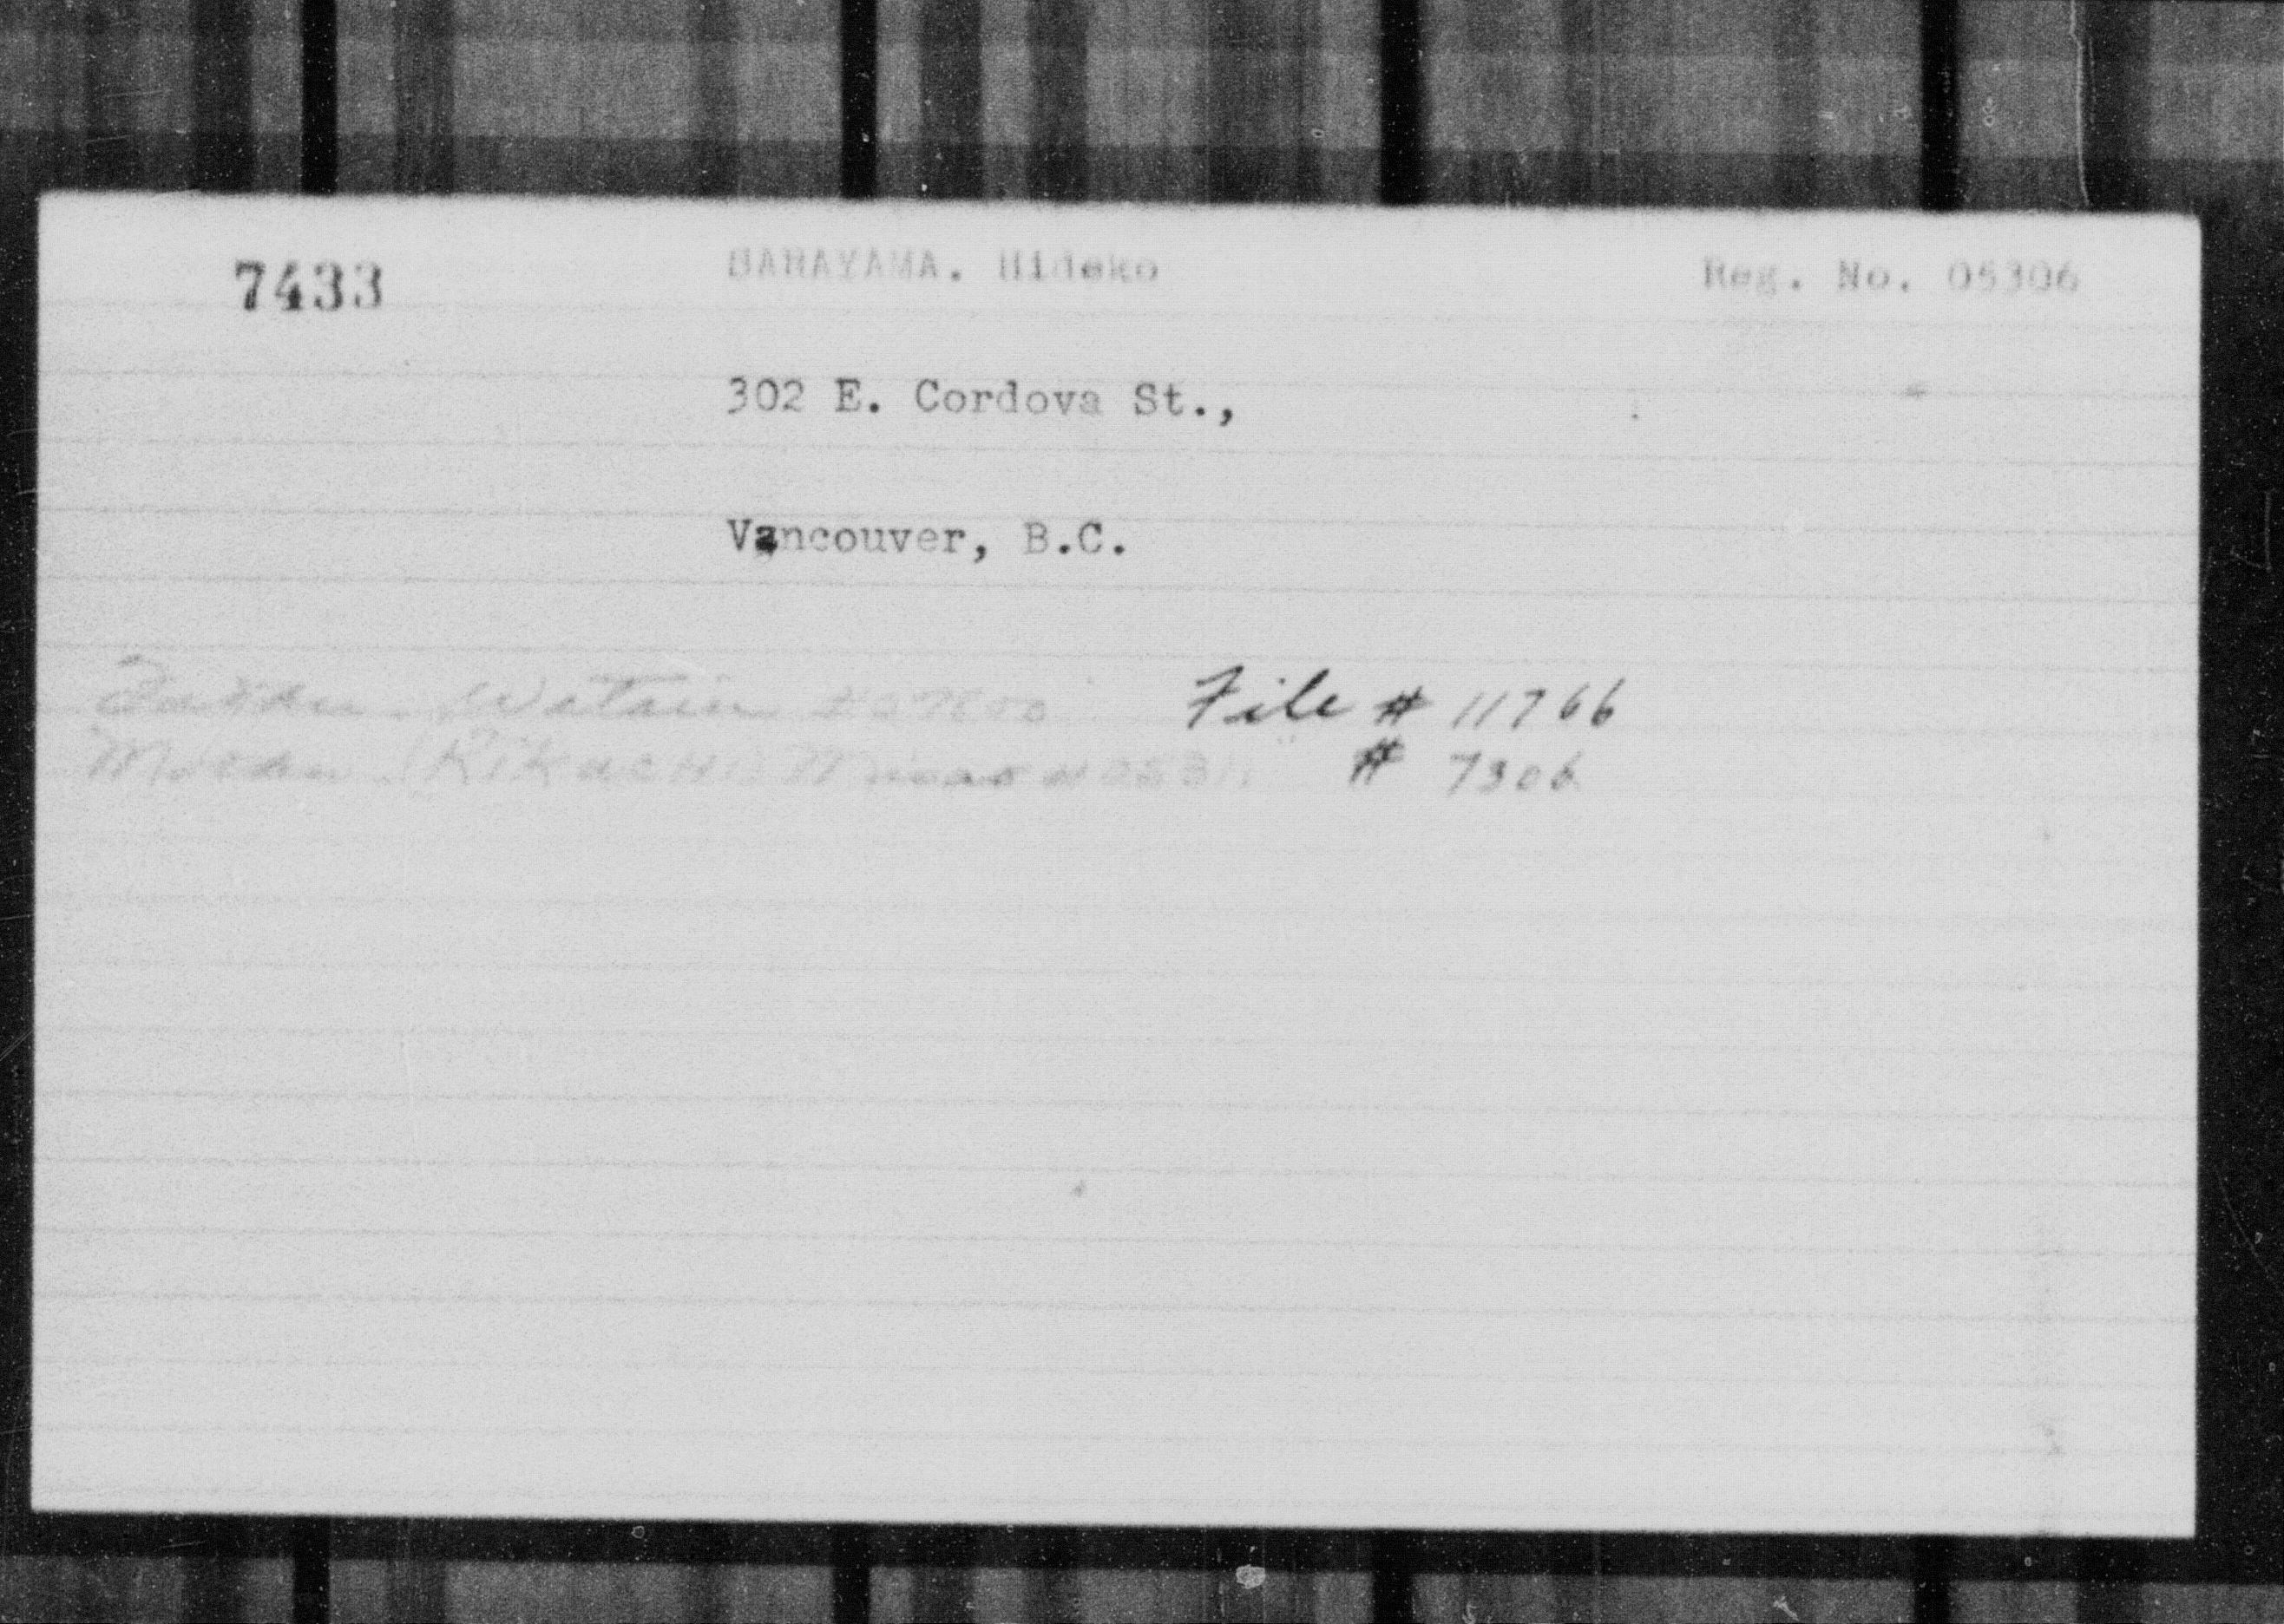 7433 Hideko Reg. No. 05306
302 E. Cordova St.,
Vancouver, B.C.
Father - File # 11766
Mother # 7306